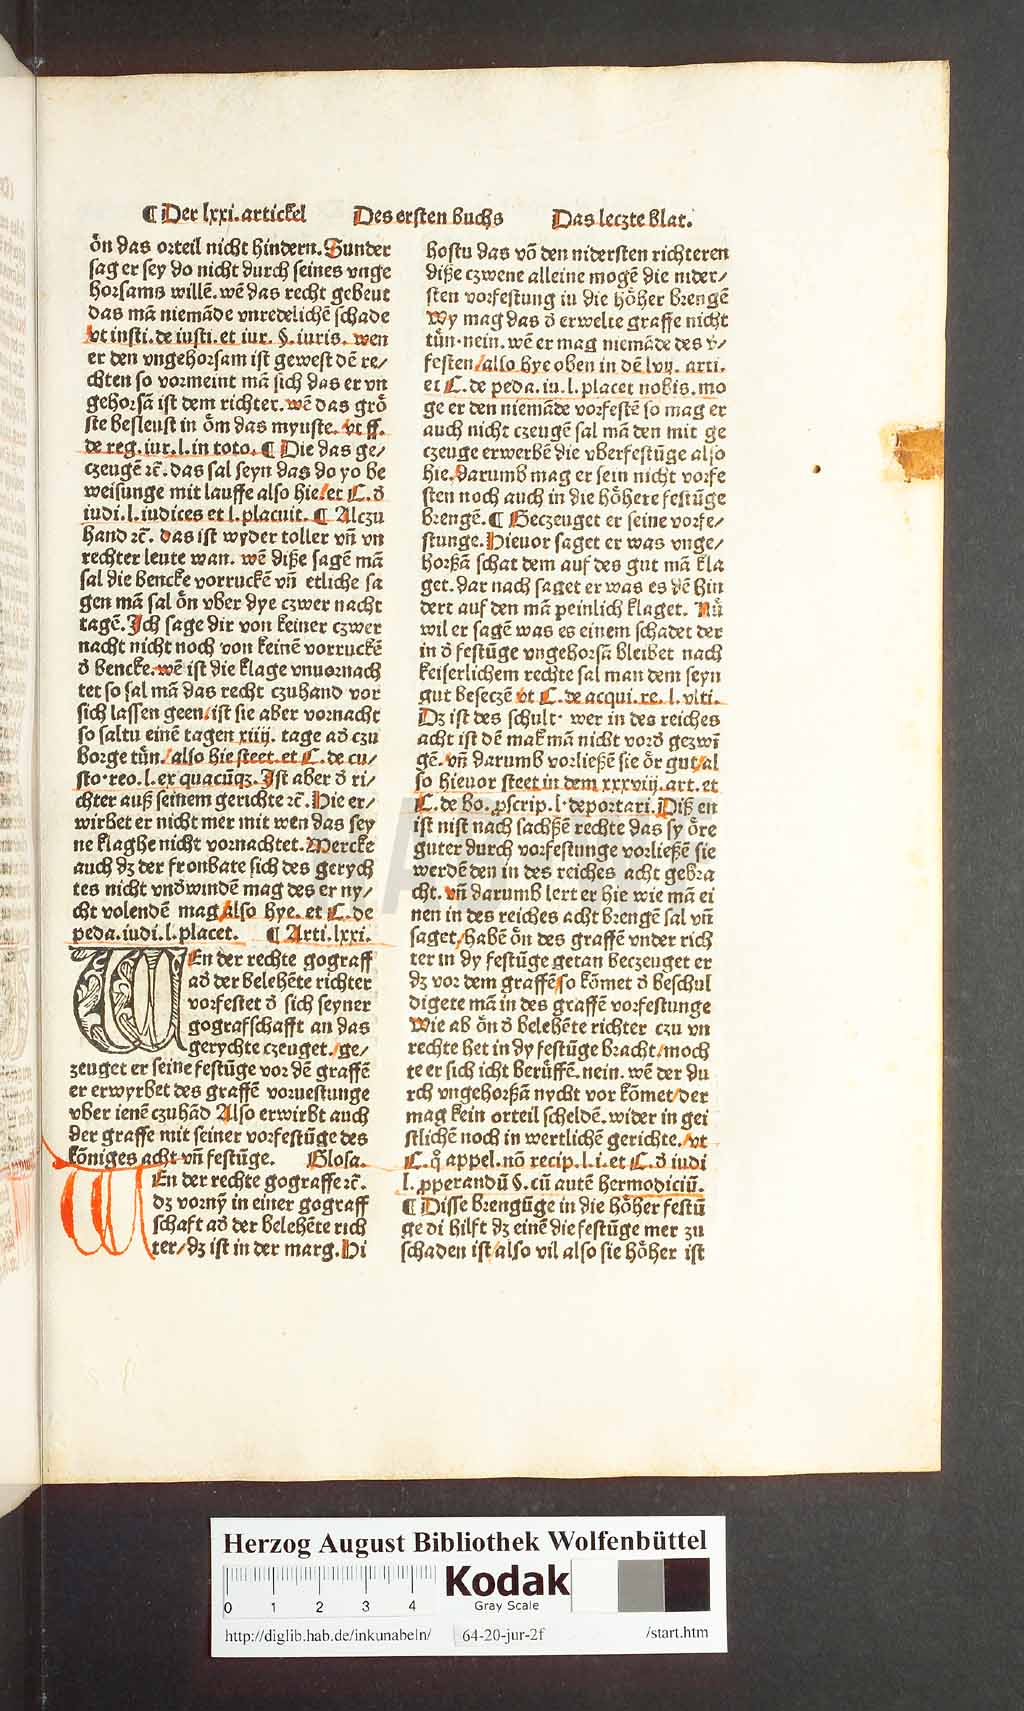 ¶ Der lxxi. artickel Des ersten buchs Das leczte blat.
ön das orteil nicht hindern. Sunder
sag er sey do nicht durch seines vnge
horsams willē. wē das recht gebeut
das mā niemāde vnredelichē schade
vt insti. de iusti. et iur. §. iuris. wen
er den vngehorsam ist gewest dē re/
chten so vormeint mā sich das er vn
gehorsā ist dem richter. wē das grö
ste besleust in öm das mynste. vt ff.
de reg. iur. l. in toto. ¶ Die das ge/
czeugē ꝛc̄. das sal seyn das do yo be
weisunge mit lauffe also hie/et C. ð
iudi. l. iudices et l. placuit. ¶ Alczu
hand ꝛc̄. das ist wyder toller vñ vn
rechter leute wan. wē diße sagē mā
sal die bencke vorruckē vñ etliche sa
gen mā sal ön vber dye czwer nacht
tagē. Ich sage dir von keiner czwer
nacht nicht noch von keinē vorruckē
ð bencke. wē ist die klage vnuornach
tet so sal mā das recht czuhand vor
sich lassen geen/ist sie aber vornacht
so saltu einē tagen xiiij. tage ad czu
borge tün./also hie steet. et C. de cu/
sto. reo. l. ex quacūqꝫ. Ist aber ð ri/
chter auß seinem gerichte ꝛc̄. Hie er/
wirbet er nicht mer mit wen das sey
ne klaghe nicht vornachtet. Mercke
auch dꝫ der fronbate sich des gerych
tes nicht vnðwindē mag des er ny/
cht volendē mag/also hye. et C. de
peda. iudi. l. placet. ¶ Arti. lxxi.
WEn der rechte gograff
ad der belehēte richter
vorfestet ð sich seyner
gografschafft an das
gerychte czeuget./ge/
zeuget er seine festūge vor dē graffē
er erwyrbet des graffē voruestunge
vber ienē czuhād Also erwirbt auch
der graffe mit seiner vorfestūge des
königes acht vñ festūge. Glosa.
WEn der rechte gograffe ꝛc̄.
dꝫ vorny̅ in einer gograff
schaft ad der belehēte rich
ter/dꝫ ist in der marg. Hi
hostu das vō den nidersten richteren
diße czwene alleine mogē die nider/
sten vorfestung in die höher brengē
Wy mag das ð erwelte graffe nicht
tün. nein. wē er mag niemāde des v/
festen/also hye oben in dē lvij. arti.
et C. de peda. iu. l. placet nobis. mo
ge er den niemāde vorfestē so mag er
auch nicht czeugē sal mā den mit ge
czeuge erwerbē die vberfestūge also
hie. darumb mag er sein nicht vorfe
sten noch auch in die höhere festūge
brengē. ¶ Beczeuget er seine vorfe/
stunge. Hieuor saget er was vnge/
horßā schat dem auf des gut mā kla
get. dar nach saget er was es dē hin
dert auf den mā peinlich klaget. Nü
wil er sagē was es einem schadet der
in ð festūge vngehorsā bleibet nach
keiserlichem rechte sal man dem seyn
gut beseczē vt C. de acqui. re. l. vlti.
Dꝫ ist des schult. wer in des reiches
acht ist dē mak mā nicht vorð gezwī
gē. vñ darumb vorließē sie ör gut/al
so hieuor steet in dem xxxviij. art. et
C. de bo. ꝓscrip. l. deportari. Diß en
ist nist nach sachßē rechte das sy öre
guter durch vorfestunge vorließē sie
werdē den in des reiches acht gebra
cht. vñ darumb lert er hie wie mā ei
nen in des reiches acht brengē sal vñ
saget/habē ön des graffē vnder rich
ter in dy festūge getan beczeuget er
dꝫ vor dem graffē/so kōmet ð beschul
digete mā in des graffē vorfestunge
Wie ab ön ð belehēte richter czu vn
rechte het in dy festūge bracht/moch
te er sich icht berüffē. nein. wē der du
rch vngehorßā nycht vor kōmet/der
mag kein orteil scheldē. wider in gei
stlichē noch in wertlichē gerichte./vt
C. q̊ appel. nō recip. l. i. et C. ð iudi
l. ꝓperandū §. cū autē hermodiciū.
¶ Disse brengūge in die höher festū
ge di hilft dꝫ einē die festūge mer zu
schaden ist/also vil also sie höher ist
Herzog August Bibliothek Wolfenbüttel
0 1 2 3 4
Kodak
Gray Scale
http://diglib.hab.de/inkunabeln/ 64-20-jur-2f /start.htm